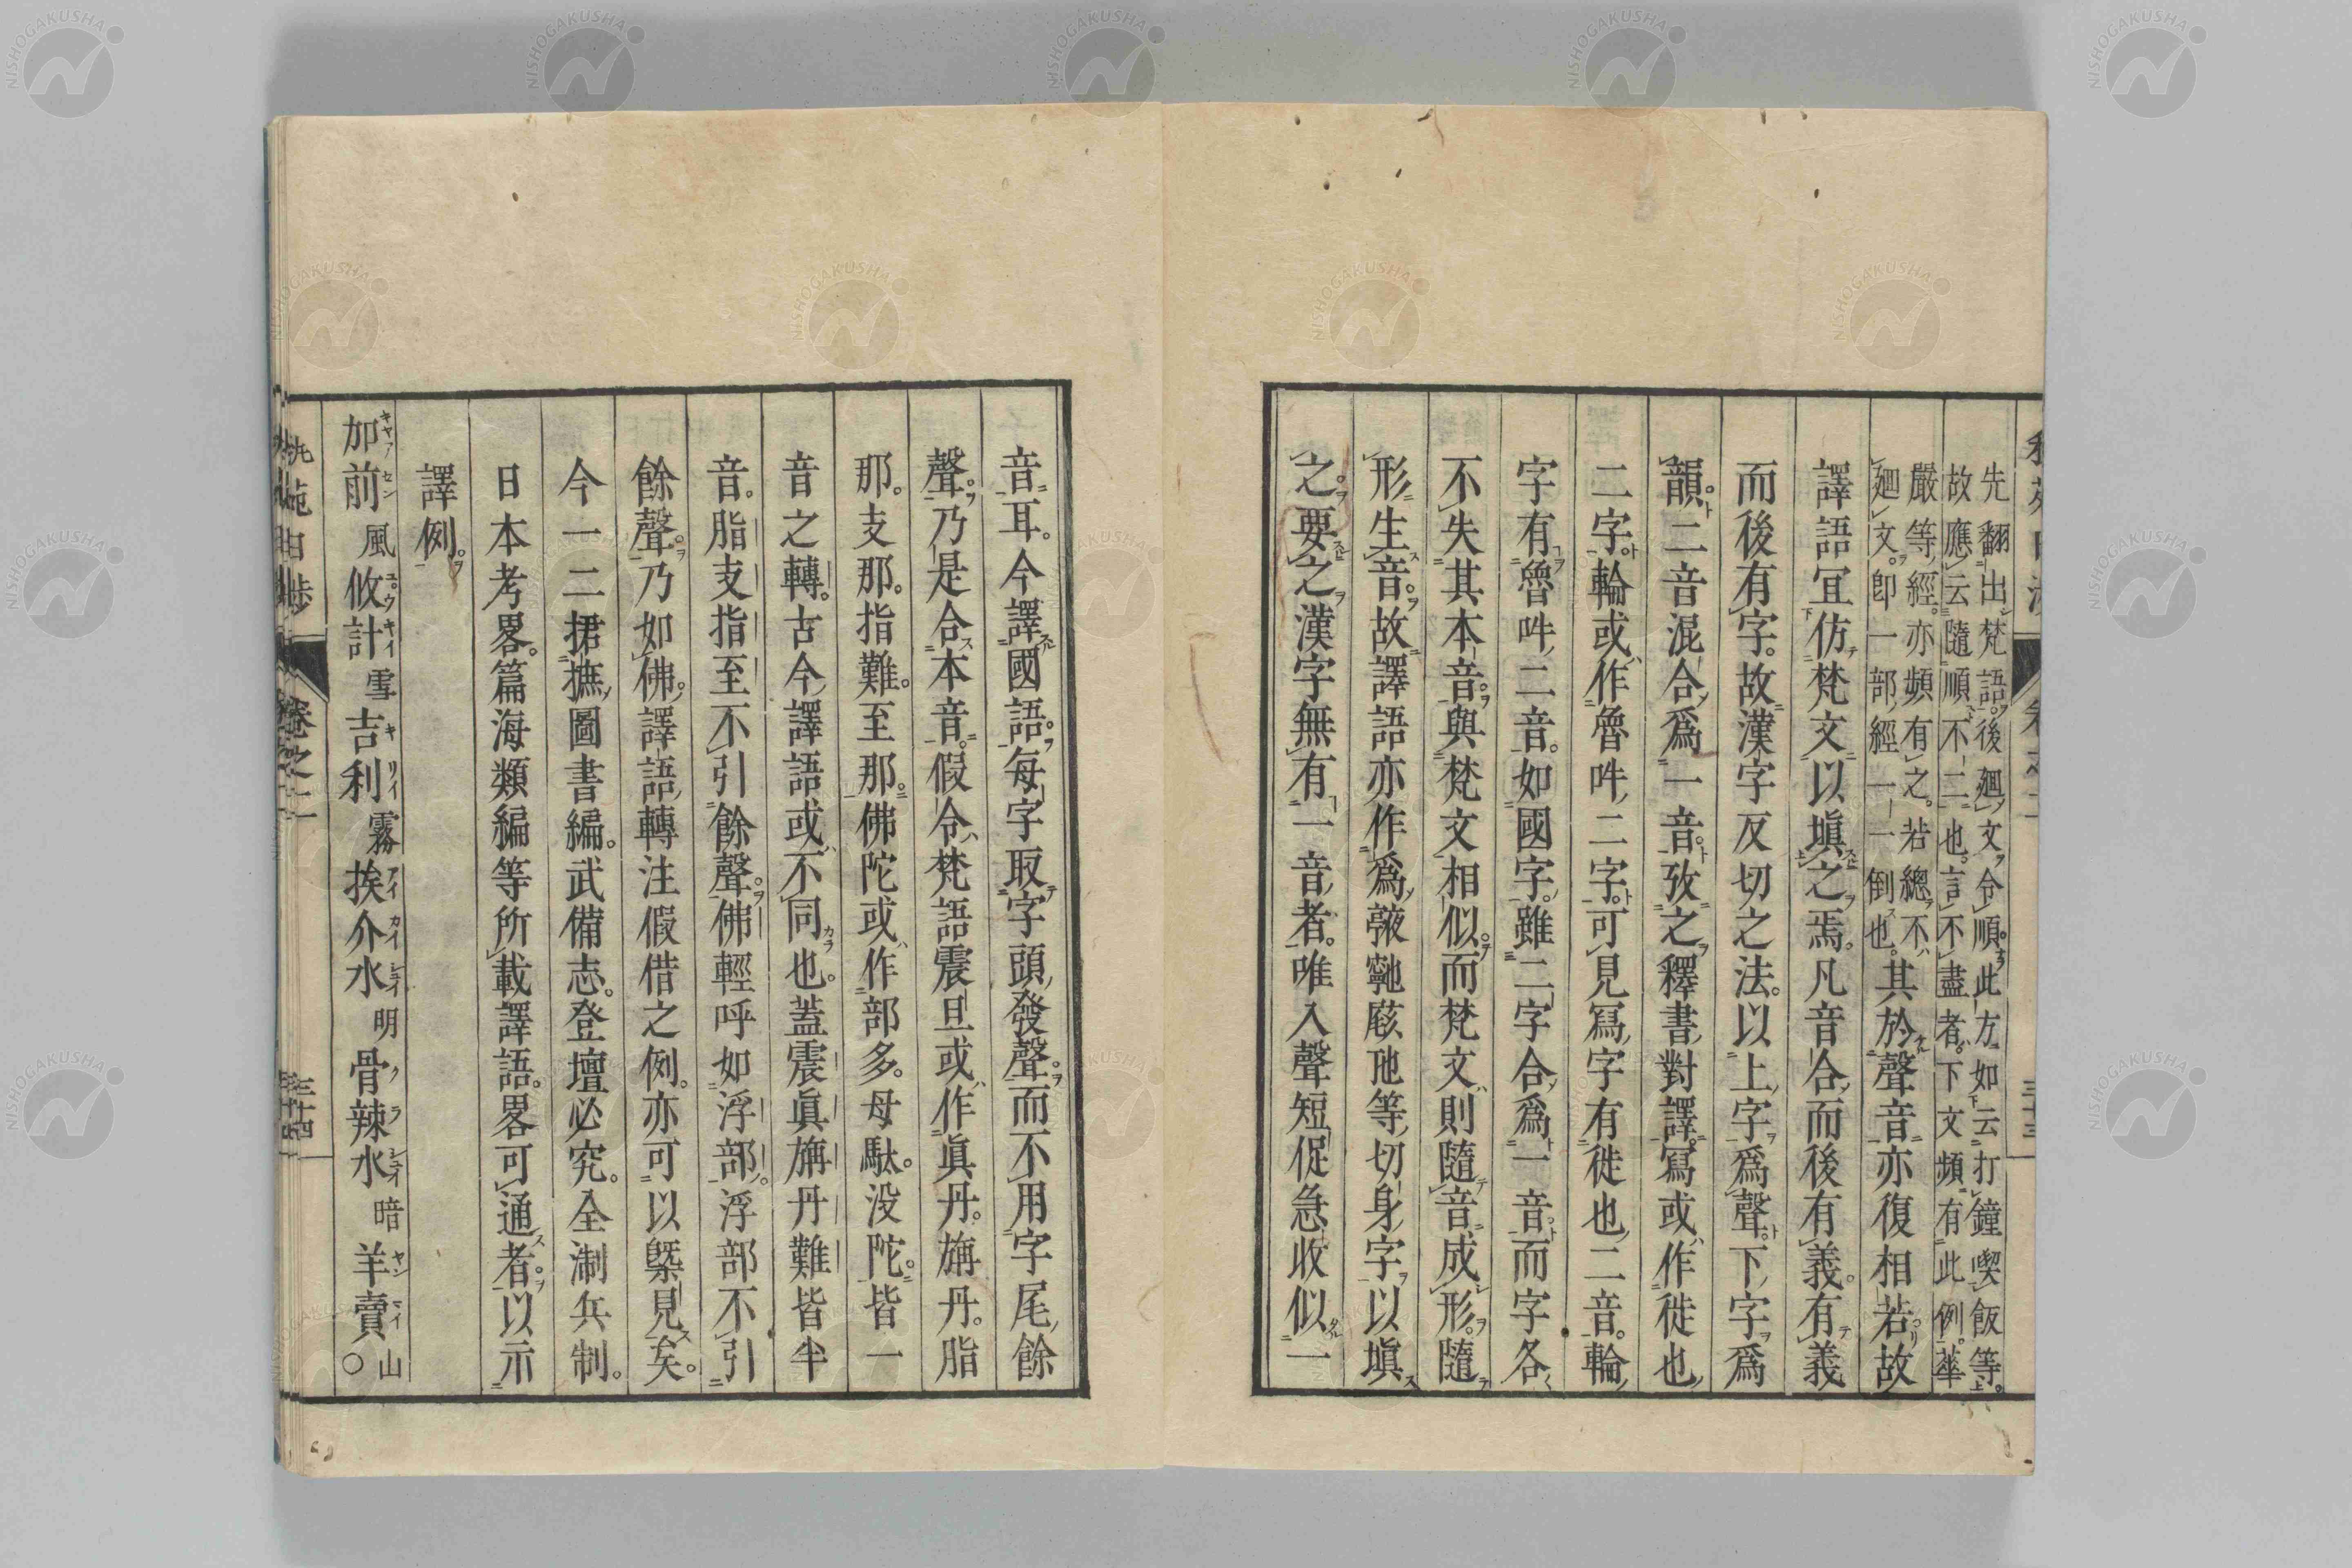 先翻出梵語。後廻文令順此方如云打鐘喫飯等。
故應云隨順不二也。言不盡者。下文頻有此例。華
嚴等經。亦頻有之。若總不
廻文。卽一部經一一倒也。其於聲音亦復相若故
譯語宜仿梵文以塡之焉。凡音合而後有義。有義
而後有字。故漢字反切之法。以上字爲聲。下字爲
韻。二音混合爲一音。攷之釋書對譯。寫或作徙也
二字。輪或作魯吽二字。可見寫字有徙也二音。輪
字有魯吽二音。如國字。雖二字合爲一音而字各
不失其本音。與梵文相似。而梵文則隨音成形。隨
形生音。故譯語亦作爲等切身字以塡
之。要之漢字無有一音者。唯入聲短促急收似一
音耳。今譯國語。每字取字頭發聲。而不用字尾餘
聲。乃是合本音。假令梵語震旦或作眞丹。旃丹。脂
那。支那。指難。至那。佛陀或作部多。母馱。没陀。皆一
音之轉。古今譯語或不同也。蓋震眞旃丹難皆半
音。脂支指至不引餘聲。佛輕呼如浮部。浮部不引
餘聲。乃如佛。譯語轉注假借之例。亦可以槩見矣。
今一二捃摭圖書編。武備志。登壇必究。全淛兵制。
日本考畧。篇海類編等所載譯語。畧可通者。以示
譯例。
加前風攸計雪吉利霧挨介水明骨辣水暗羊賣山○
卷之二
三十四